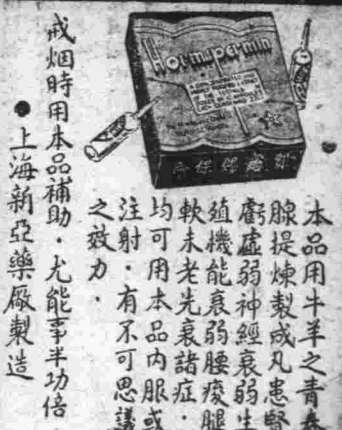 Hormspermin
本品用牛羊之青春
腺提煉製成凡患腎
虧虛弱神經衰弱生
殖機能衰弱腰痠腿
軟未老先衰諸症·
均可用本品內服或
注射·有不可思議
之效力·
戒烟時用本品補助·尤能事半功倍
●上海新亞藥廠製造